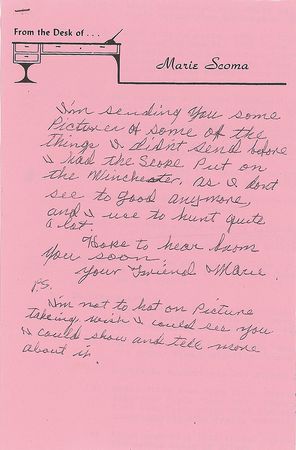 From the Desk of . . .
Marie Scoma
I'm sending you some
Pictures of some of the
things I didn't send before
I had the Scope Put on
the Winchester, as I dont
see to good anymore,
and I use to hunt quite
a lot.
Hope to hear from
you soon,
your Friend Marie
P.S.
I'm not to hot on Picture
taking, wish I could see you
I could show and tell more
about it.